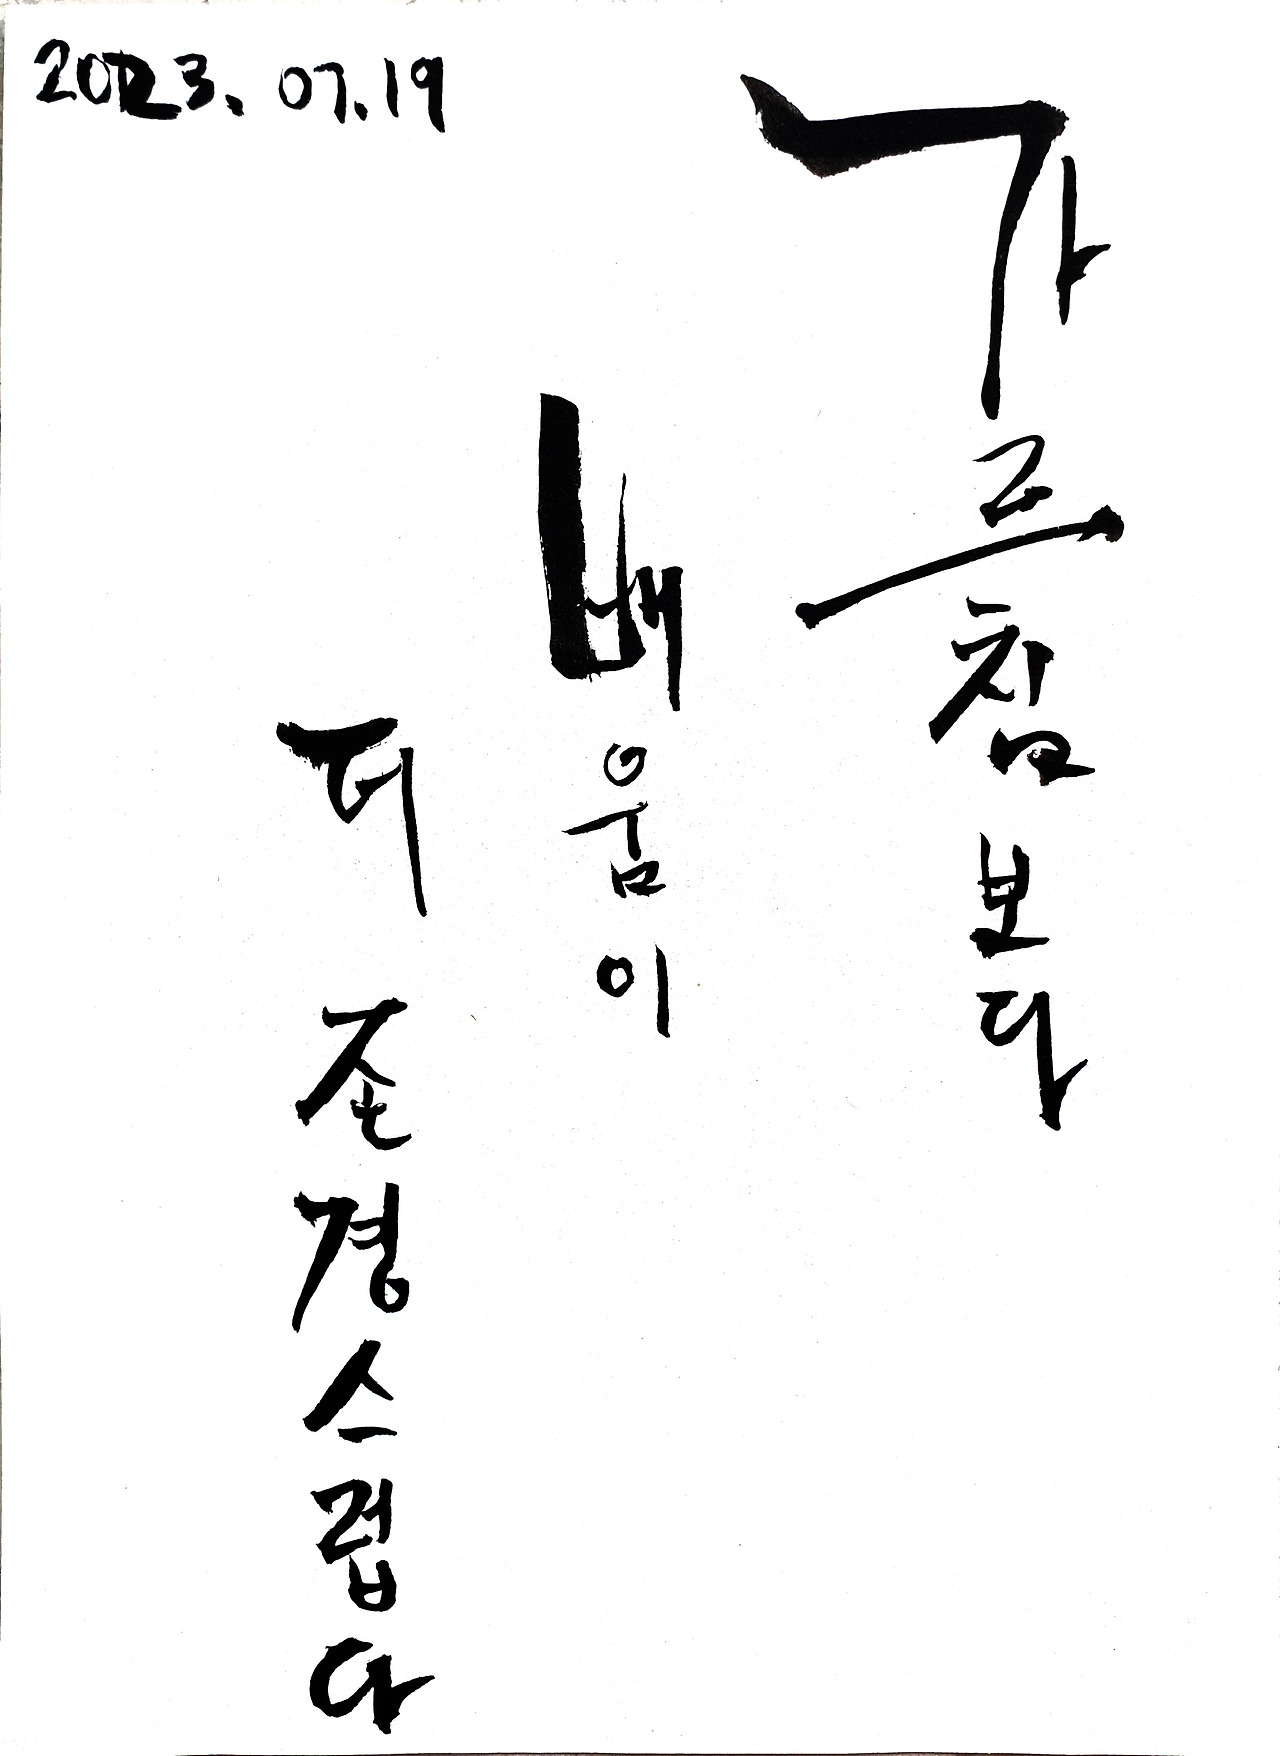 2023. 07.19
가르침보다
배움이
더 존경스럽다